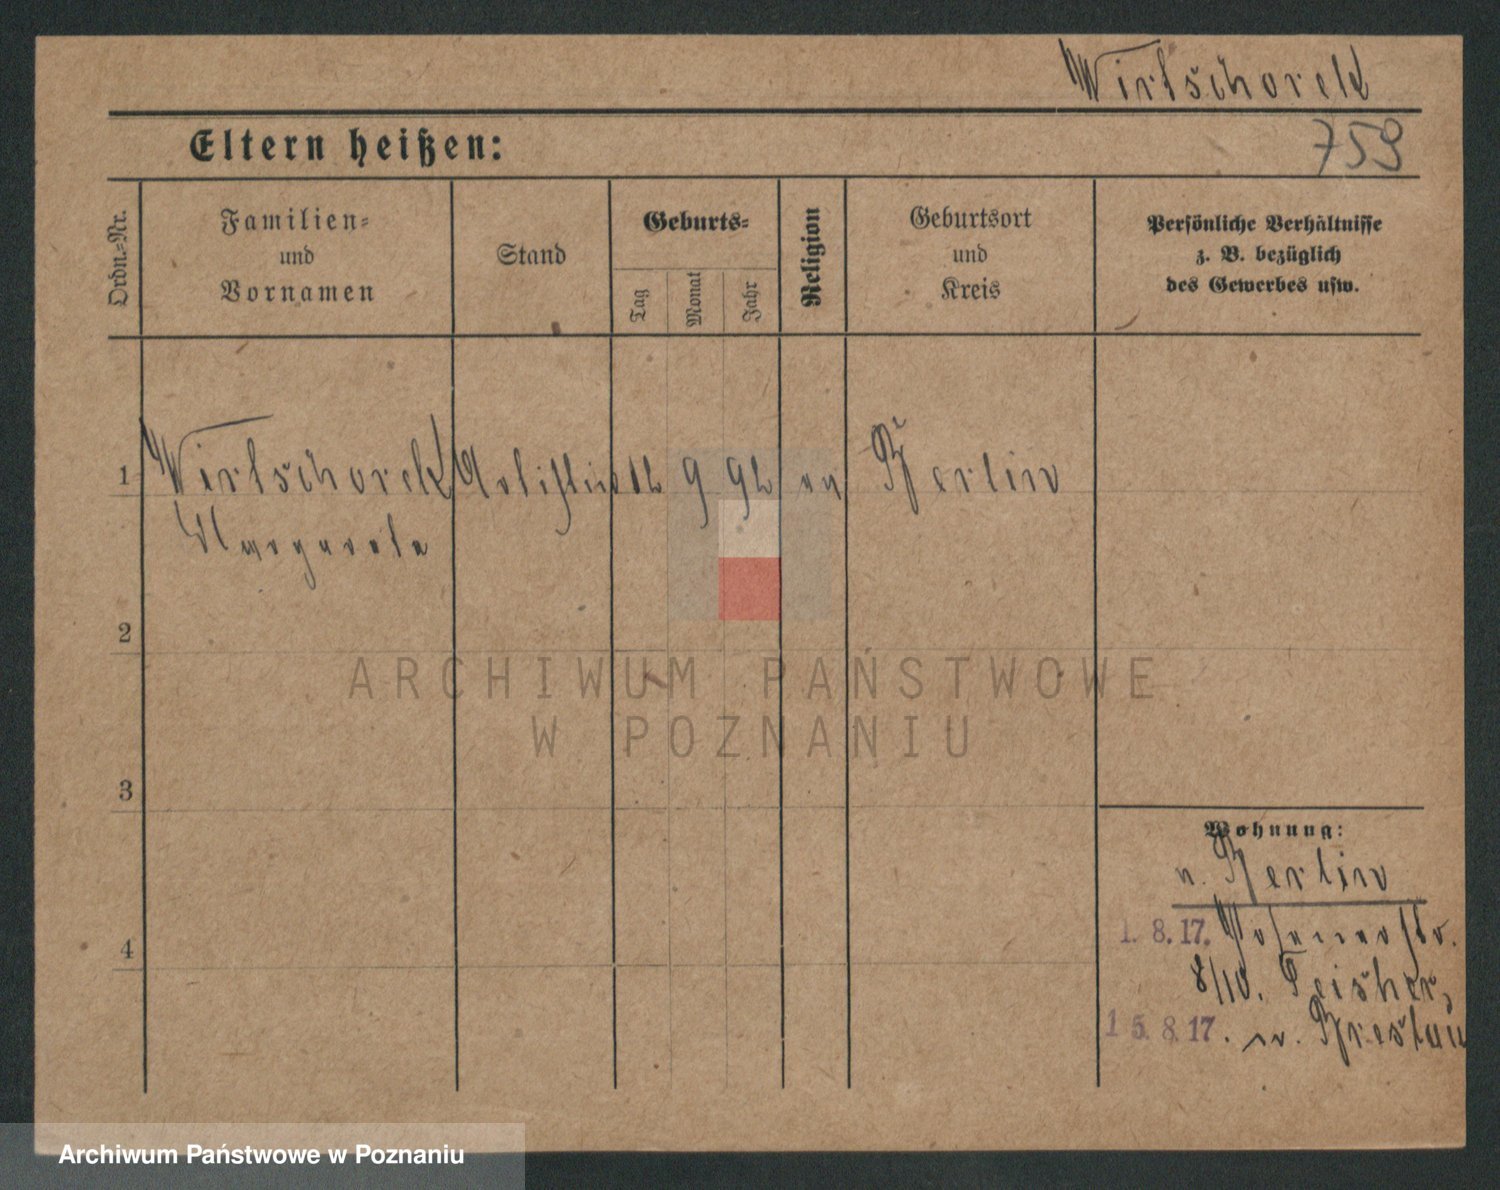 Wirtschoreck
Eltern heißen:
759
Ordn.-Nr.
Familien-
und
Vornamen
Stand
Geburts-
Tag
Monat
Jahr
Religion
Geburtsort
und
Kreis
Persönliche Verhältnisse
z. B. bezüglich
des Gewerbes usw.
1 Wirtschoreck Artistin 12 9 92 ev Berlin
Margareta
2
ARCHIWUM PAŃSTWOWE
W POZNANIU
3
Wohnung:
v. Berlin
4
1. 8. 17. Posenerstr.
8/10.
15. 8. 17. n. Breslau
Archiwum Państwowe w Poznaniu